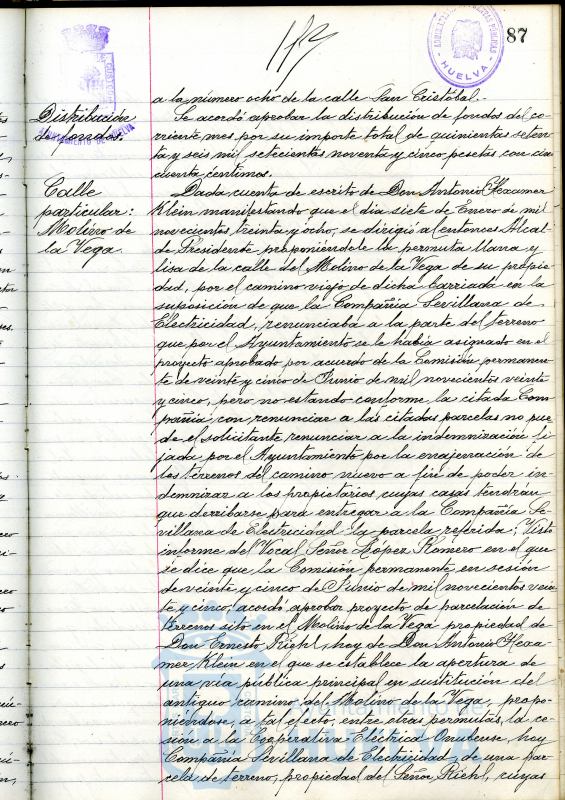 87
HUELVA
a la número ocho de la calle San Cristóbal.
Distribución de fondos.
AYUNTAMIENTO DE HUELVA
Se acordó aprobar la distribución de fondos del co-
rriente mes, por su importe total de quinientas seten-
ta y seis mil setecientas noventa y cinco pesetas con cin-
cuenta céntimos.
Calle particular: Molino de la Vega.
Dada cuenta de escrito de Don Antonio
Klein manifestando que el dia siete de Enero de mil
novecientos treinta y ocho, se dirigió al entonces Alcal-
de Presidente proponiéndole la permuta llana y
lisa de la calle del Molino de la Vega de su propie-
dad, por el camino viejo de dicha barriada en la
suposición de que la Compañia Sevillana de
Electricidad, renunciaba a la parte del terreno
que por el Ayuntamiento se le habia asignado en el
proyecto aprobado por acuerdo de la Comisión permanen-
te de veinte y cinco de Junio de mil novecientos veinte
y cinco, pero no estando conforme la citada Com-
pañia, con renunciar a las citadas parcelas no pue-
de el solicitante renunciar a la indemnización fi-
jada por el Ayuntamiento por la enajenación de
los terrenos del camino nuevo a fin de poder in-
demnizar a los propietarios cuyas casas tendrán
que derribarse para entregar a la Compañia Se-
villana de Electricidad la parcela referida; Visto
informe del Vocal Señor López Romero en el que
se dice que la Comisión permanente en sesión
de veinte y cinco de Junio de mil novecientos vein-
te y cinco, acordó aprobar proyecto de parcelación de
terrenos sito en el Molino de la Vega propiedad de
Don Ernesto Riehl, hoy de Don Antonio
Klein en el que se establece la apertura de
una via pública principal en sustitución del
antiguo camino del Molino de la Vega, propo-
niéndose, a tal efecto, entre otras permutas, la ce-
sión a la Cooperativa Eléctrica Onubense, hoy
Compañia Sevillana de Electricidad, de una par-
cela de terreno, propiedad del Señor Riehl, cuyas
Ayuntamiento de
HUELVA